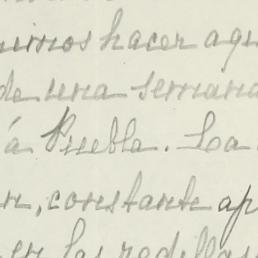 nimos hacer aqu
de una semana
á Puebla. La
n, constante ap
en las rodillas